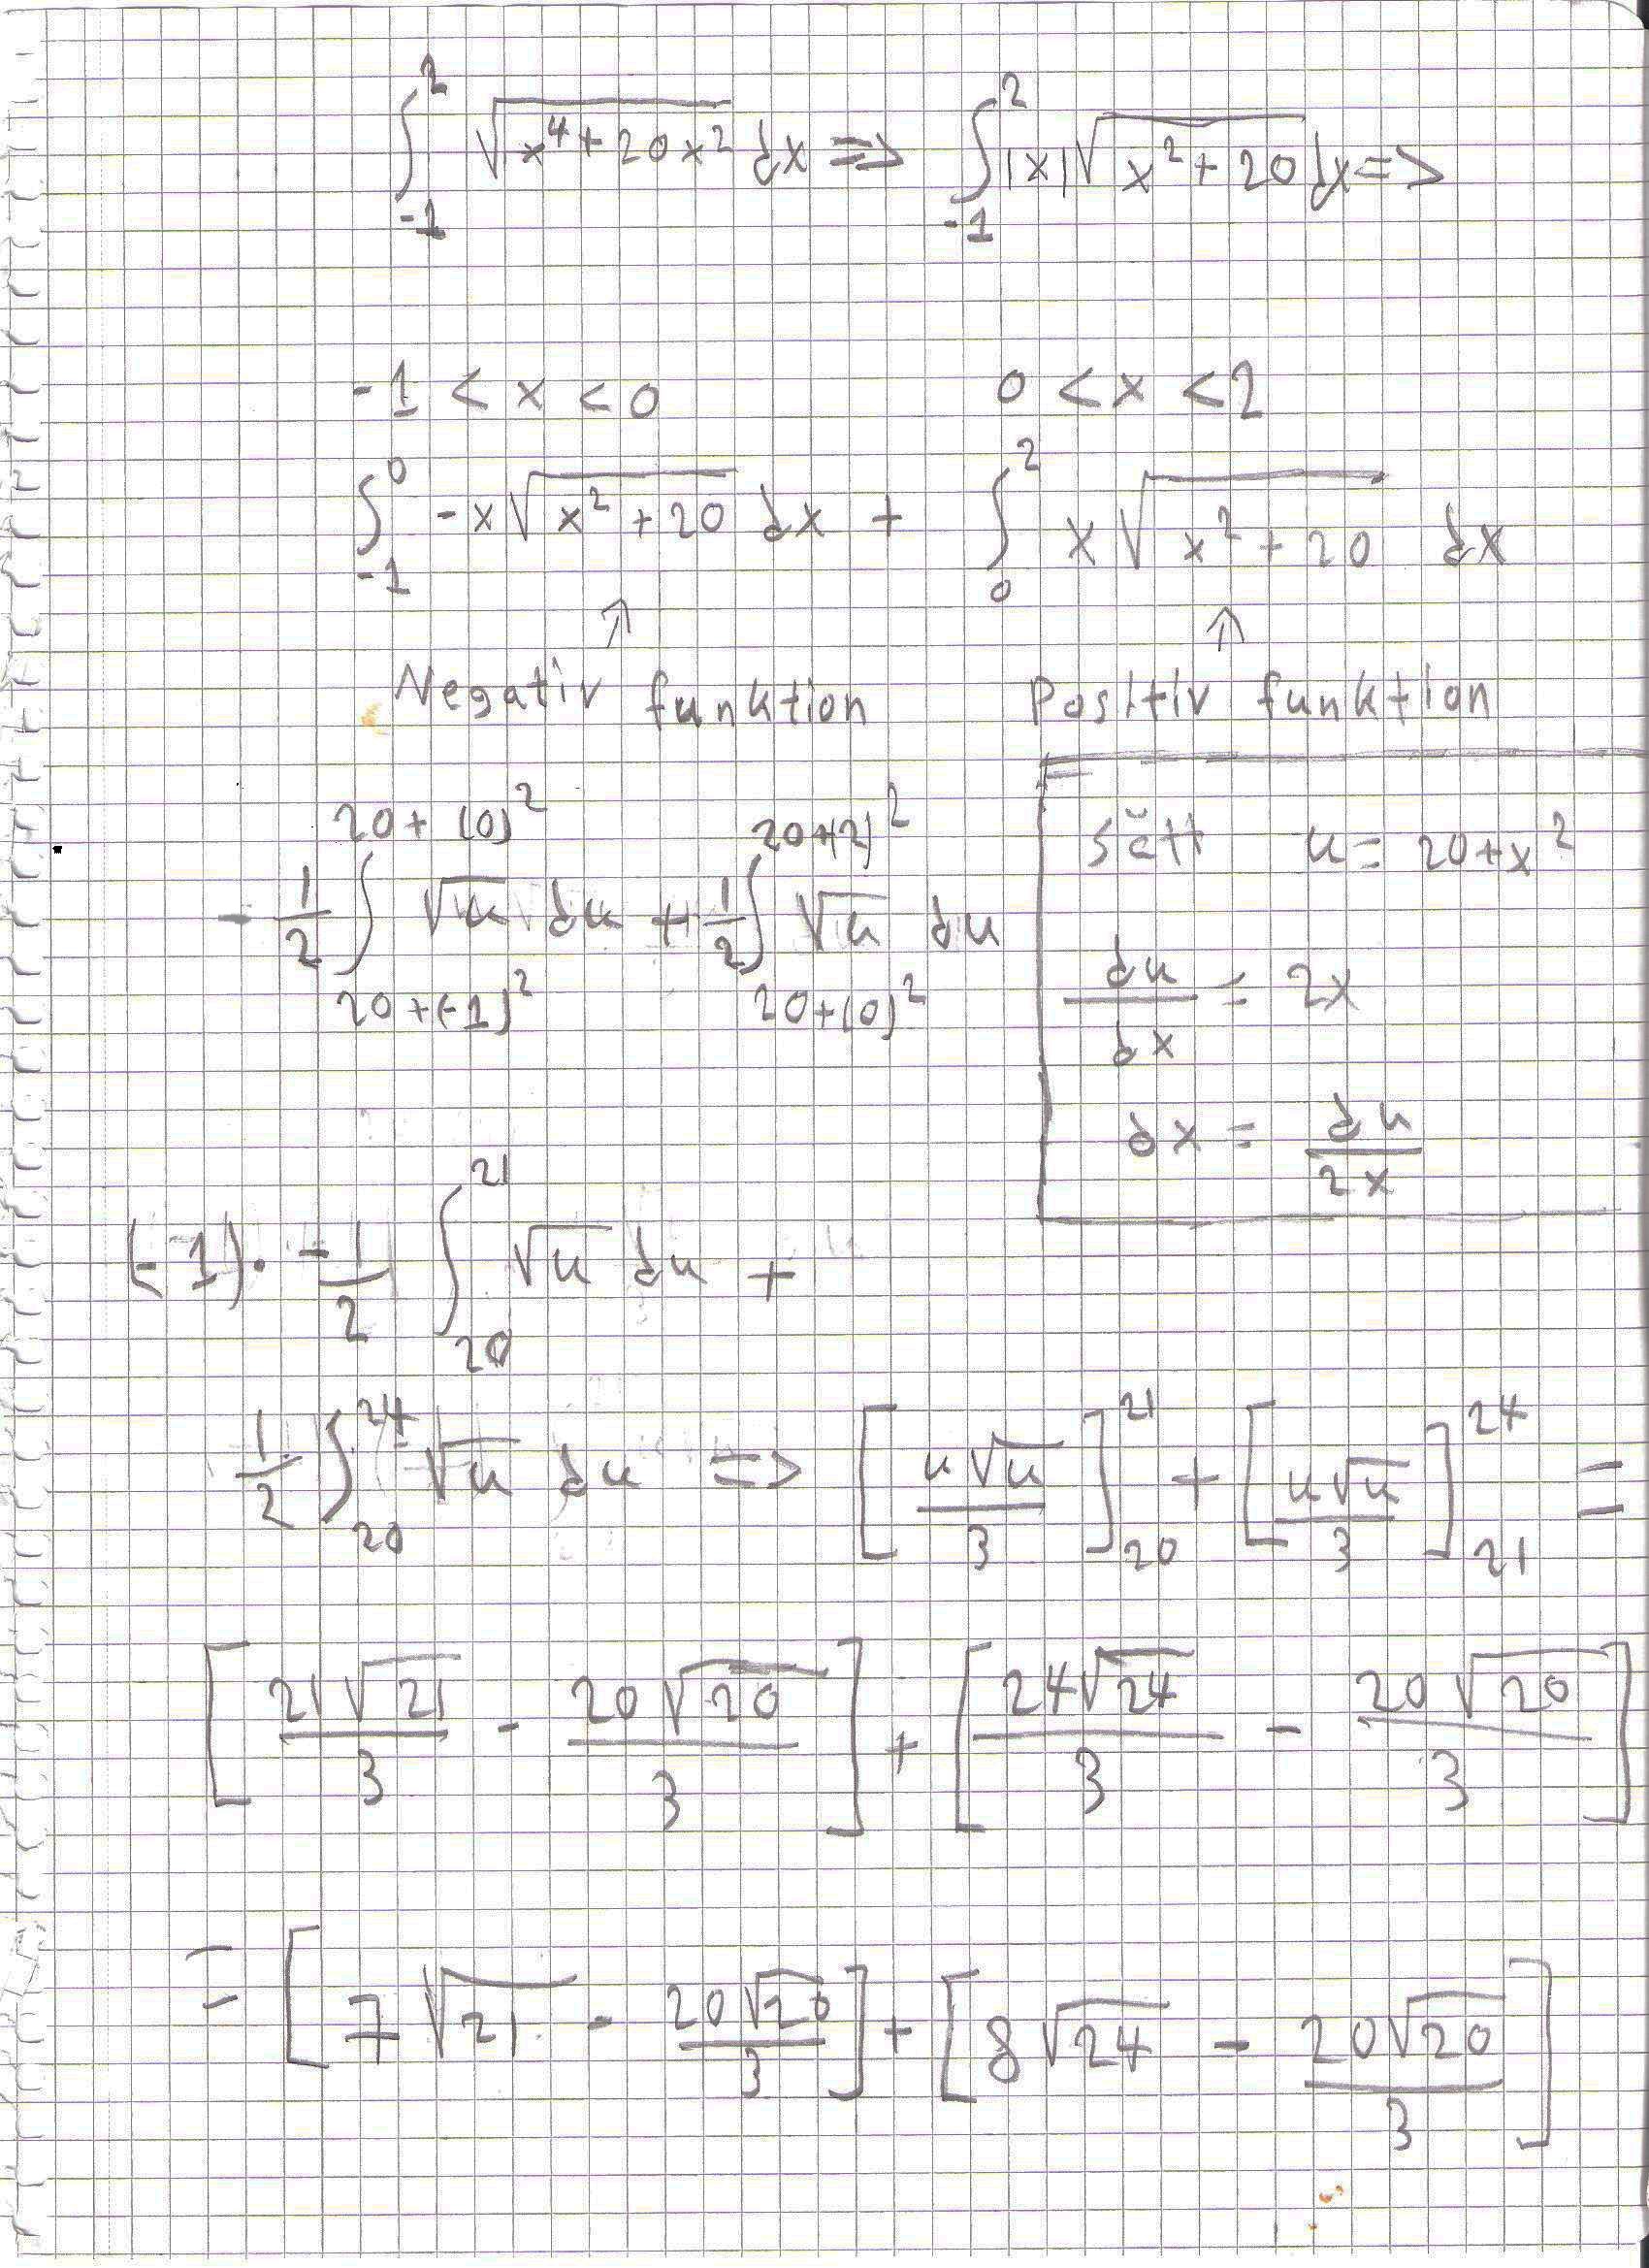 ∫_{-1}^{2} √(x⁴ + 20x²) dx => ∫_{-1}^{2} |x|√(x² + 20) dx =>
-1 < x < 0    0 < x < 2
∫_{-1}^{0} -x√(x² + 20) dx + ∫_{0}^{2} x√(x² + 20) dx
↑ ↑
Negativ funktion    Positiv funktion
-1/2 ∫_{20+(-1)²}^{20+(0)²} √u du + 1/2 ∫_{20+(0)²}^{20+(2)²} √u du
sätt u = 20+x²
du/dx = 2x
dx = du/2x
(-1)· -1/2 ∫_{20}^{21} √u du +
1/2 ∫_{20}^{24} √u du => [u√u/3]_{20}^{21} + [u√u/3]_{21}^{24} =
[21√21/3 - 20√20/3] + [24√24/3 - 20√20/3]
= [7√21 - 20√20/3] + [8√24 - 20√20/3]